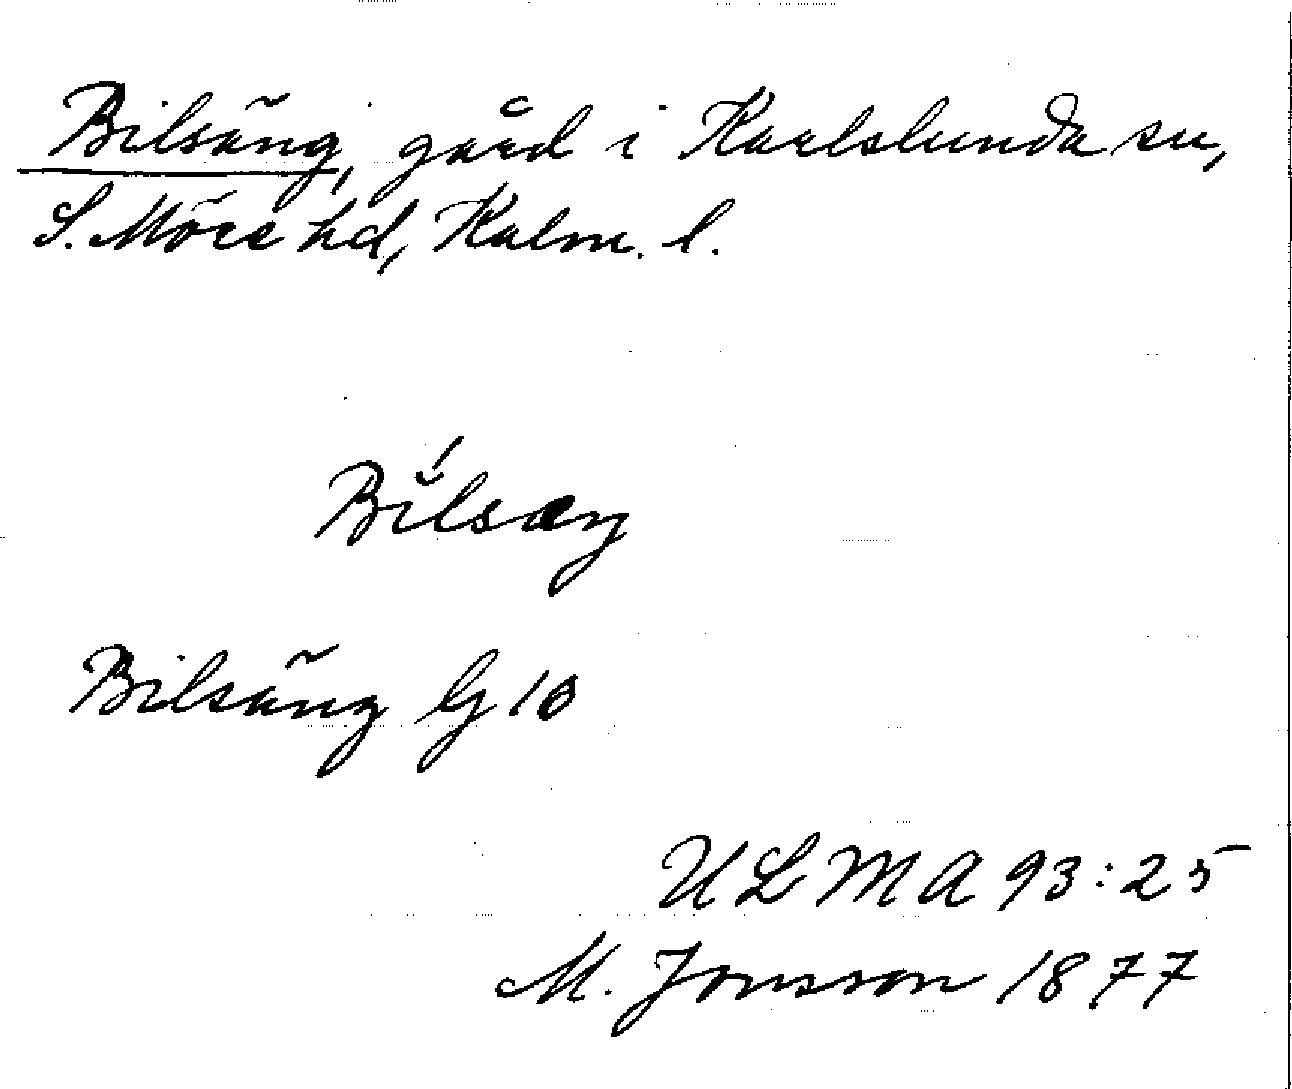 Bilsäng, gård i Karlslunda sn,
S. Möre hd, Kalm. l.
Bĭ́lsæŋ
Bilsäng G 10
ULMA 93:25
M. Jonsson 1877